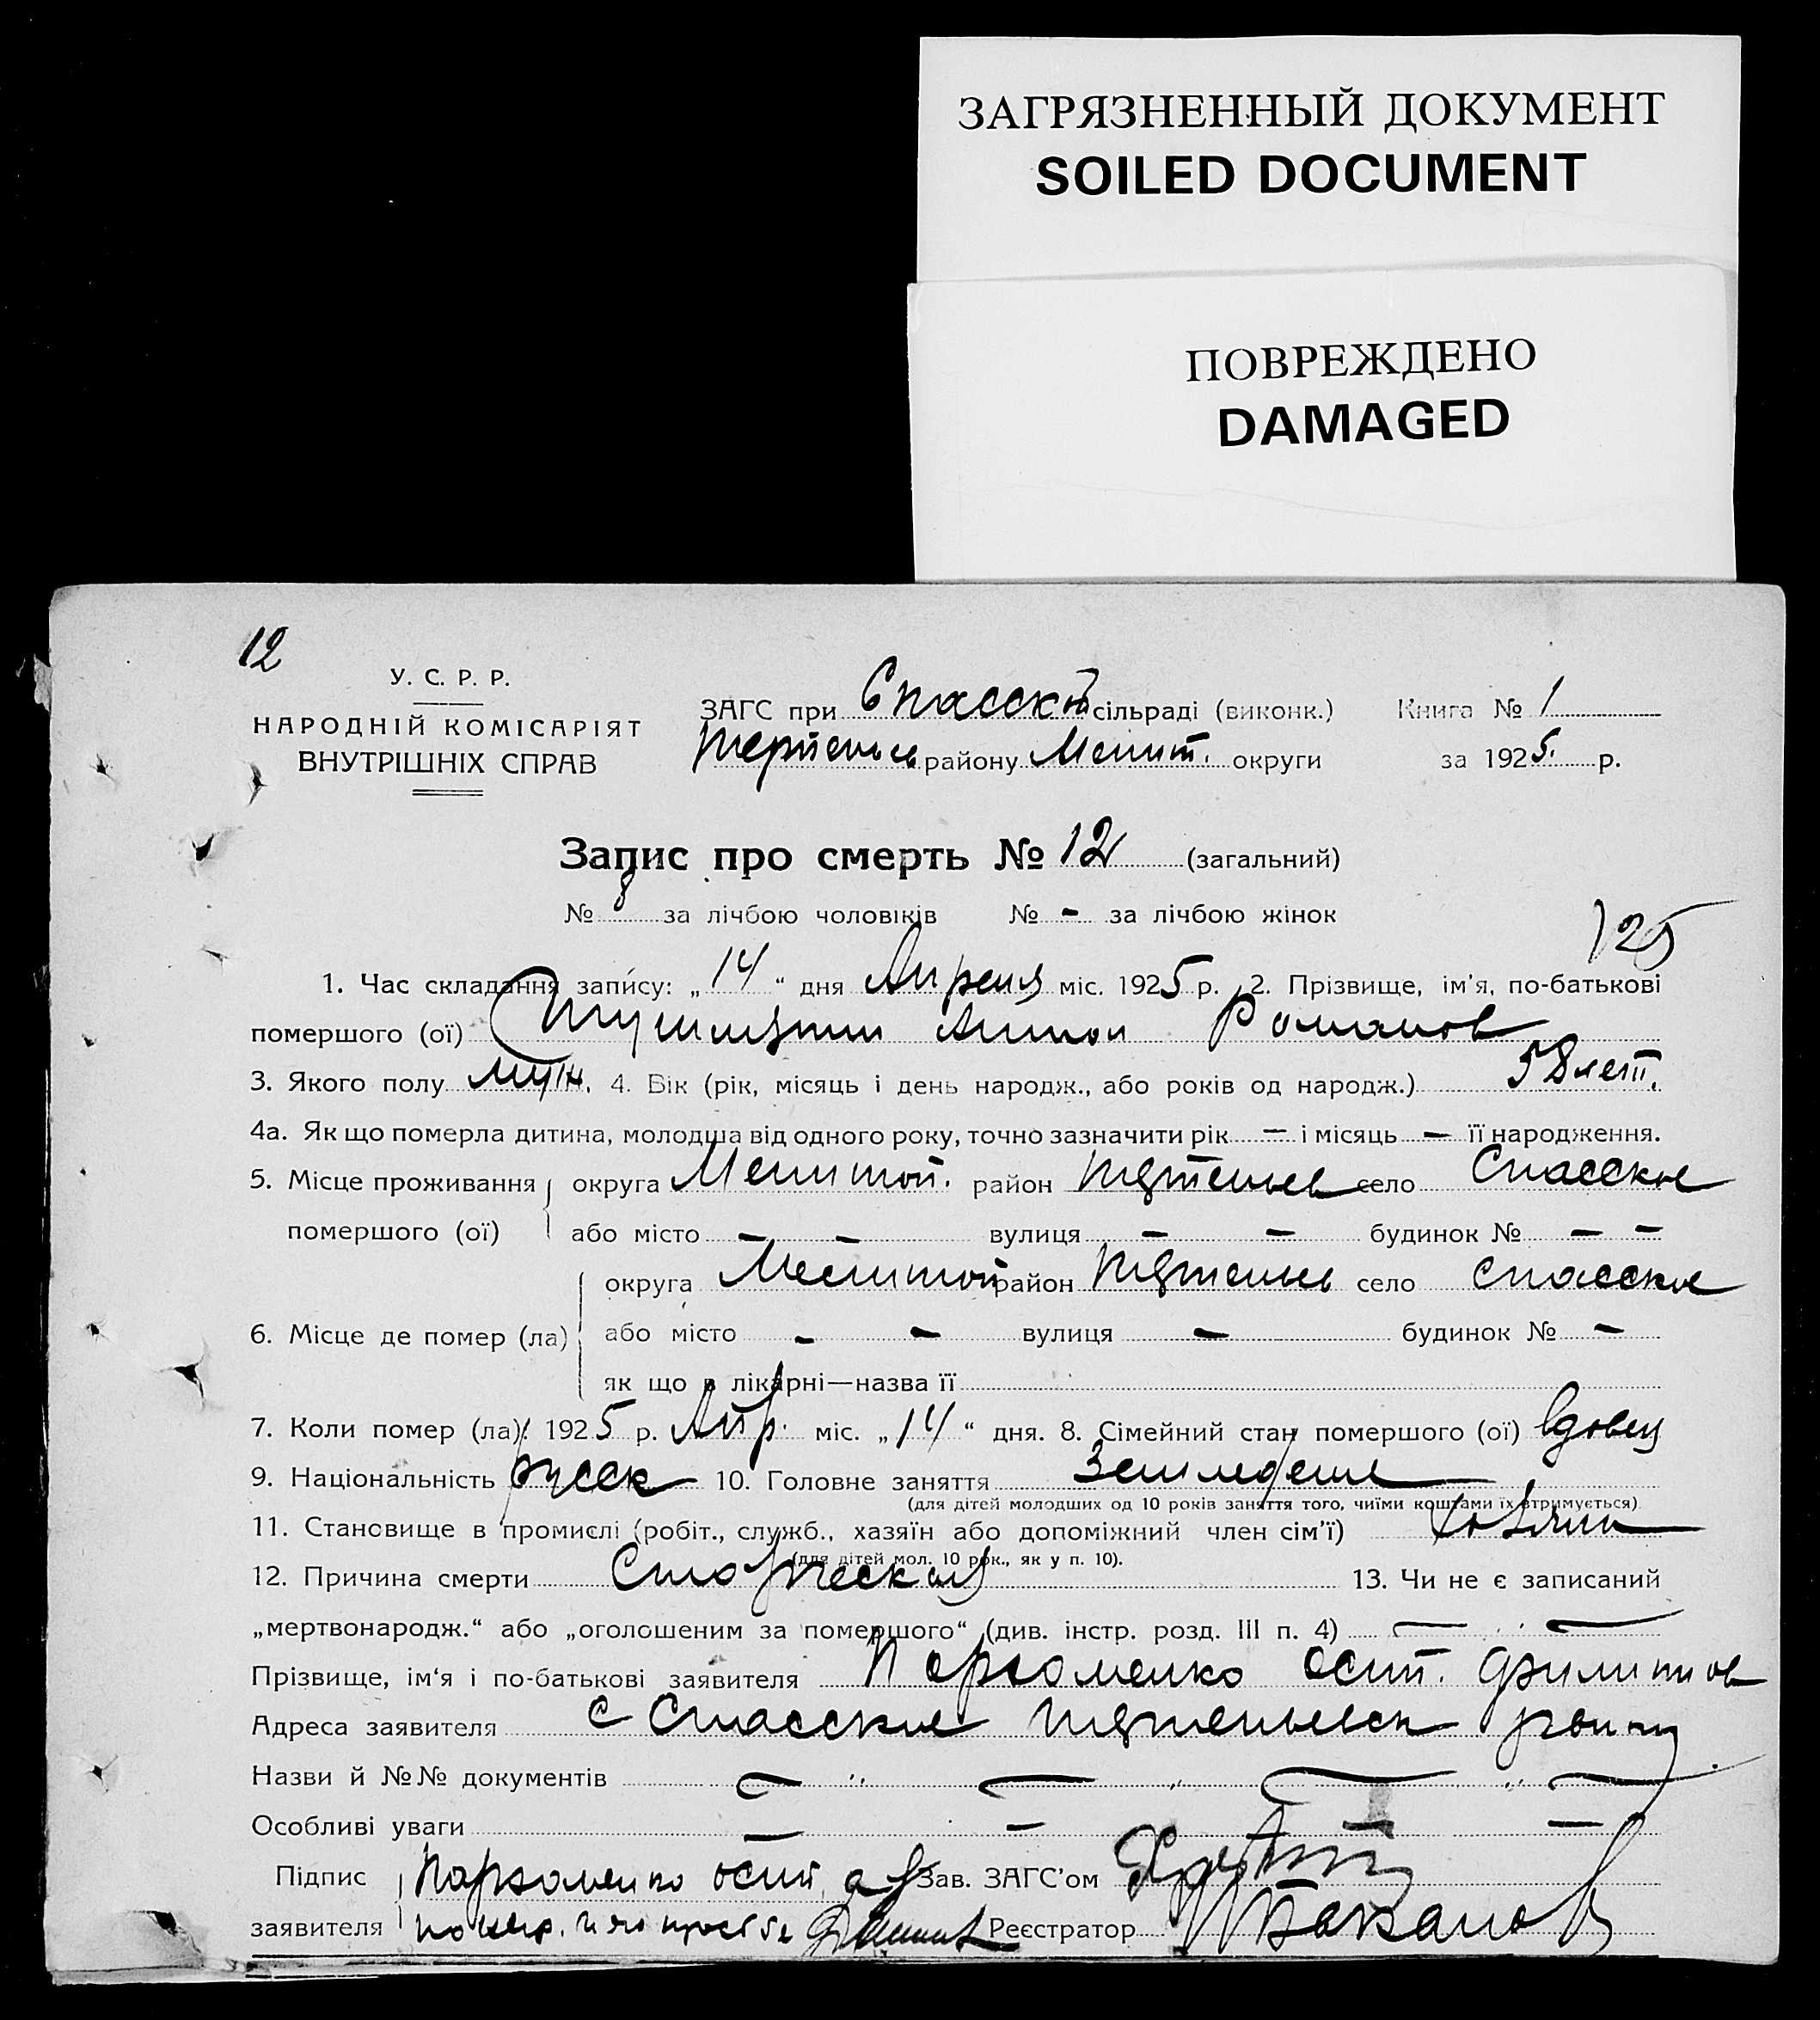 ЗАГРЯЗНЕННЫЙ ДОКУМЕНТ
SOILED DOCUMENT
ПОВРЕЖДЕНО
DAMAGED
12
У. С. Р. Р.
НАРОДНІЙ КОМІСАРІЯТ
ВНУТРІШНІХ СПРАВ
ЗАГС при Спасской сільраді (виконк.) Книга № 1
району Мелит. округи за 1925. р.
Запис про смерть № 12 (загальний)
№ 8 за лічбою чоловіків № - за лічбою жінок
125
1. Час складання запису: „14“ дня Апреля міс. 1925 р. 2. Прізвище, ім'я, по-батькові
помершого (ої) Антон Романов
3. Якого полу муж. 4. Вік (рік, місяць і день народж., або років од народж.) 58 лет.
4а. Як що померла дитина, молодша від одного року, точно зазначити рік — і місяць — її народження.
5. Місце проживання округа Мелитоп. район село Спасское
помершого (ої) або місто — — вулиця — — будинок № — —
округа Мелитоп район село Спасское
6. Місце де помер (ла) або місто - — вулиця — будинок № —
як що в лікарні—назва її
7. Коли помер (ла): 1925 р. Апр. міс. „14“ дня. 8. Сімейний стан помершого (ої) вдовец
9. Національність русск 10. Головне заняття Земледелие
(для дітей молодших од 10 років заняття того, чиїми коштами їх втримується)
11. Становище в промислі (робіт., служб., хазяїн або допоміжний член сім'ї) хозяин
(для дітей мол. 10 рок., як у п. 10).
12. Причина смерти Старческая 13. Чи не є записаний
„мертвонародж.“ або „оголошеним за помершого“ (див. інстр. розд. III п. 4) — —
Прізвище, ім'я і по-батькові заявителя Пархоменко Осип. Филипов
Адреса заявителя с Спасское району
Назви й №№ документів — „ — „ — „ —
Особливі уваги — — — —
Підпис Пархоменко Осип, а Зав. ЗАГС'ом
заявителя по негр. и по прозьбе Реєстратор